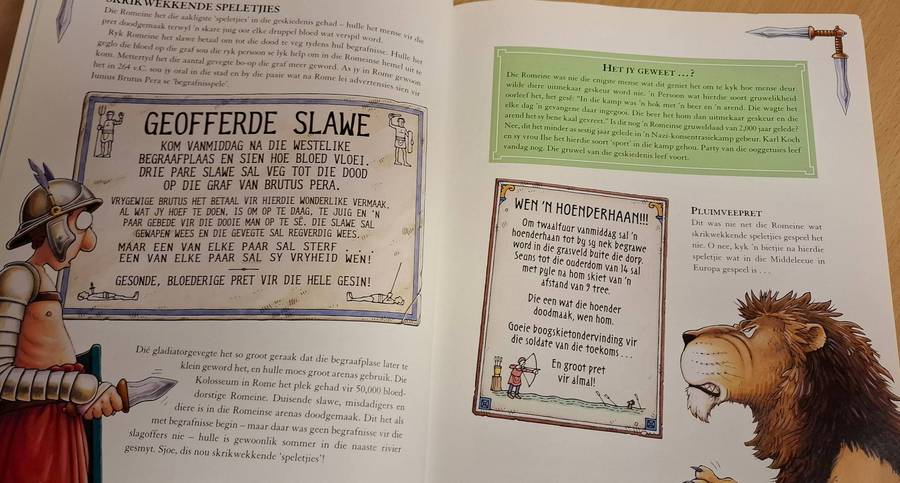 SKRIKWEKKENDE SPELETJIES
Die Romeine het die aakligste 'speletjies' in die geskiedenis gehad – hulle het mense vir die
pret doodgemaak terwyl 'n skare juig oor elke druppel bloed wat verspil word.
Ryk Romeine het slawe betaal om tot die dood te veg tydens hul begrafnisse. Hulle het
geglo die bloed op die graf sou die ryk persoon se lyk help om in die Romeinse hemel uit te
kom. Mettertyd het die aantal gevegte bo-op die graf meer geword. As jy in Rome gewoon
het in 264 v.C. sou jy oral in die stad en by die paaie wat na Rome lei advertensies sien vir
Junius Brutus Pera se 'begrafnisspele'.
GEOFFERDE SLAWE
KOM VANMIDDAG NA DIE WESTELIKE
BEGRAAFPLAAS EN SIEN HOE BLOED VLOEI.
DRIE PARE SLAWE SAL VEG TOT DIE DOOD
OP DIE GRAF VAN BRUTUS PERA.
VRYGEWIGE BRUTUS HET BETAAL VIR HIERDIE WONDERLIKE VERMAAK,
AL WAT JY HOEF TE DOEN, IS OM OP TE DAAG, TE JUIG EN 'N
PAAR GEBEDE VIR DIE DOOIE MAN OP TE SÊ. DIE SLAWE SAL
GEWAPEN WEES EN DIE GEVEGTE SAL REGVERDIG WEES.
MAAR EEN VAN ELKE PAAR SAL STERF ...
EEN VAN ELKE PAAR SAL SY VRYHEID WEN!
GESONDE, BLOEDERIGE PRET VIR DIE HELE GESIN!
Dié gladiatorgevegte het so groot geraak dat die begraafplase later te
klein geword het, en hulle moes groot arenas gebruik. Die
Kolosseum in Rome het plek gehad vir 50,000 bloed-
dorstige Romeine. Duisende slawe, misdadigers en
diere is in die Romeinse arenas doodgemaak. Dit het as
met begrafnisse begin – maar daar was geen begrafnis vir die
slagoffers nie – hulle is gewoonlik sommer in die naaste rivier
gesmyt. Sjoe, dis nou skrikwekkende 'speletjies'!
HET JY GEWEET ...?
Die Romeine was nie die enigste mense wat dit geniet het om te kyk hoe mense deur
wilde diere uitmekaar geskeur word nie. 'n Persoon wat hierdie soort gruwelikheid
oorleef het, het gesê: "In die kamp was 'n hok met 'n beer en 'n arend. Die wagte het
elke dag 'n gevangene daar ingegooi. Die beer het hom dan uitmekaar geskeur en die
arend het sy bene kaal gevreet." Is dit nog 'n Romeinse gruweldaad van 2,000 jaar gelede?
Nee, dit het minder as sestig jaar gelede in 'n Nazi-konsentrasiekamp gebeur. Karl Koch
en sy vrou Ilse het hierdie soort 'sport' in die kamp gehou. Party van die ooggetuies leef
vandag nog. Die gruwel van die geskiedenis leef voort.
WEN 'N HOENDERHAAN!!!
Om twaalfuur vanmiddag sal 'n
hoenderhaan tot by sy nek begrawe
word in die grasveld buite die dorp.
Seuns tot die ouderdom van 14 sal
met pyle na hom skiet van 'n
afstand van 9 tree.
Die een wat die hoender
doodmaak, wen hom.
Goeie boogskietondervinding vir
die soldate van die toekoms ...
En groot pret
vir almal!
PLUIMVEEPRET
Dit was nie net die Romeine wat
skrikwekkende speletjies gespeel het
nie. O nee, kyk 'n bietjie na hierdie
speletjie wat in die Middeleeue in
Europa gespeel is ...